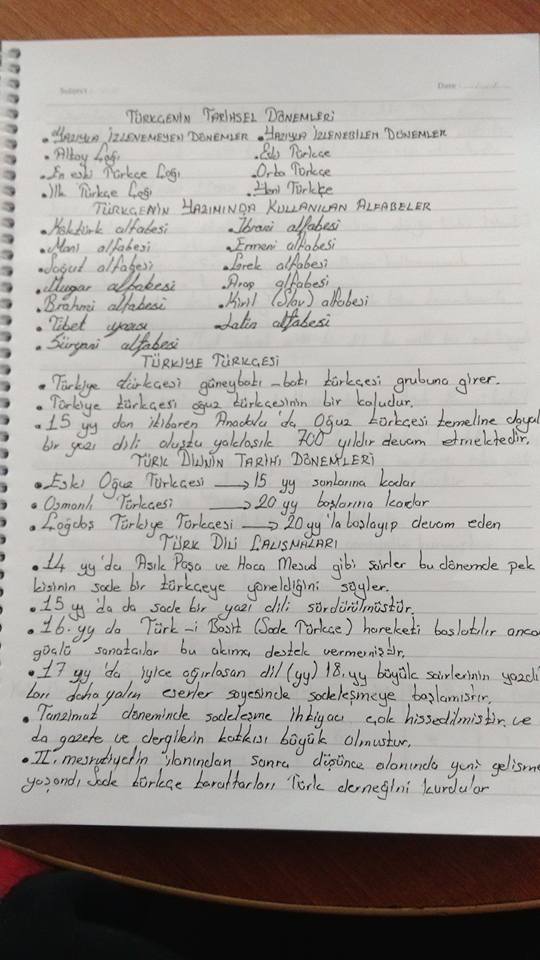 Subject: Date:
TÜRKÇENİN TARİHSEL DÖNEMLERİ
• YAZIYLA İZLENEMEYEN DÖNEMLER • YAZIYLA İZLENEBİLEN DÖNEMLER
• Altay Çağı • Eski Türkçe
• En eski Türkçe Çağı Orta Türkçe
• İlk Türkçe Çağı • Yeni Türkçe
TÜRKÇENİN YAZIMINDA KULLANILAN ALFABELER
• Köktürk alfabesi • İbrani alfabesi
• Mani alfabesi • Ermeni alfabesi
• Soğud alfabesi • Grek alfabesi
• Uygur alfabesi • Arap alfabesi
• Brahmi alfabesi • Kiril (Slav) alfabesi
• Tibet yazısı • Latin alfabesi
• Süryani alfabesi
TÜRKİYE TÜRKÇESİ
• Türkiye türkçesi güneybatı-batı türkçesi grubuna girer.
• Türkiye türkçesi oğuz türkçesinin bir koludur.
• 15 yy dan itibaren Anadolu'da Oğuz türkçesi temeline dayal
bir yazı dili oluştu yaklaşık 700 yıldır devam etmektedir.
TÜRK DİLİNİN TARİHİ DÖNEMLERİ
• Eski Oğuz Türkçesi → 15 yy sonlarına kadar
• Osmanlı Türkçesi → 20 yy başlarına kadar
• Çağdaş Türkiye Türkçesi → 20 yy'la başlayıp devam eden
TÜRK DİLİ ÇALIŞMALARI
• 14 yy'da Aşık Paşa ve Hoca Mesud gibi şairler bu dönemde pek
kişinin sade bir türkçeye yöneldiğini söyler.
• 15 yy'da da sade bir yazı dili sürdürülmüştür.
• 16. yy da Türk-i Basit (Sade Türkçe) hareketi başlatılır anca
güçlü sanatçılar bu akıma destek vermemiştir.
• 17 yy'da iyice ağırlaşan dil (yy) 18. yy büyük şairlerinin yazdı
ları daha yalın eserler sayesinde sadeleşmeye başlamıştır.
• Tanzimat döneminde sadeleşme ihtiyacı çok hissedilmiştir ve
da gazete ve dergilerin katkısı büyük olmuştur.
• II. meşrutiyet'in ilanından sonra düşünce alanında yeni gelişme
yaşandı Sade türkçe taraftarları Türk derneğini kurdular